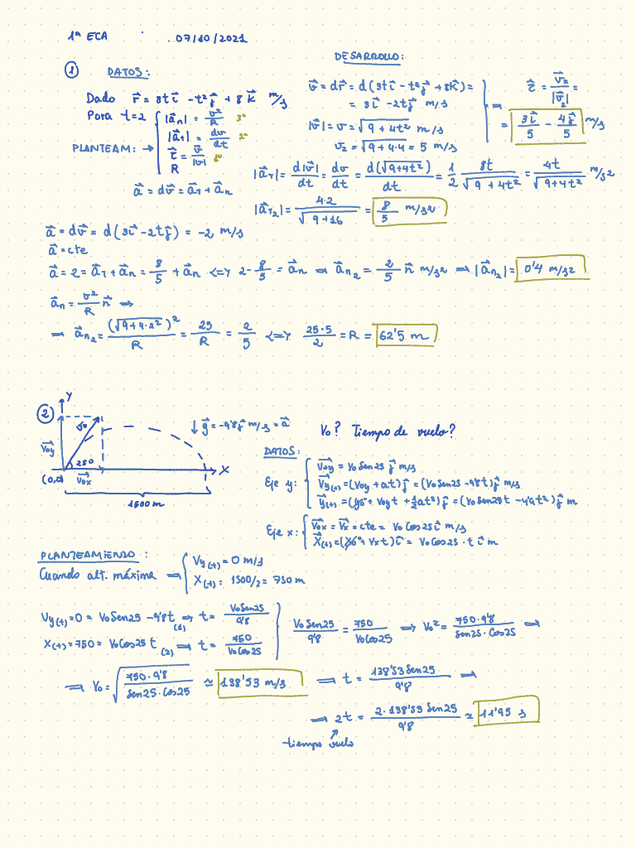 1ª ECA . 07/10/2021
DESARROLLO:
① DATOS:
Dado r⃗ = 3t i⃗ - t² j⃗ + 8 k⃗ m/s
Para t=2
PLANTEAM: →
|a⃗n| = v²/R 3º
|a⃗t| = dv/dt 2º
τ⃗ = v⃗/|v| 1º
R
a⃗ = dv⃗ = a⃗t + a⃗n
v⃗ = dr⃗ = d(3t i⃗ - t² j⃗ + 8k⃗) =
= 3i⃗ - 2t j⃗ m/s
|v⃗| = v = √(9+4t²) m/s
v₂ = √(9+4·4) = 5 m/s
⇒ τ⃗ = v⃗₂/|v⃗₂| =
= 3i⃗/5 - 4j⃗/5 m/s
|a⃗t| = d|v⃗|/dt = dv/dt = d(√(9+4t²))/dt = 1/2 8t/√(9+4t²) = 4t/√(9+4t²) m/s²
|a⃗t₂| = 4·2/√(9+16) = 8/5 m/s²
a⃗ = dv⃗ = d(3i⃗ - 2t j⃗) = -2 m/s
a⃗ = cte
a⃗ = 2 = a⃗t + a⃗n = 8/5 + a⃗n <=> 2 - 8/5 = a⃗n ⇒ a⃗n₂ = 2/5 n⃗ m/s² ⇒ |a⃗n₂| = 0'4 m/s²
a⃗n = v²/R n⃗ ⇒
⇒ a⃗n₂ = (√(9+4·2²))²/R = 25/R = 2/5 <=> 25·5/2 = R = 62'5 m
②
Y
v⃗oy
v⃗o
25º
(0,0)
v⃗ox
X
1500 m
↓ g⃗ = -9'8 j⃗ m/s = a⃗
Vo? Tiempo de vuelo?
DATOS:
Eje y:
v⃗oy = Vo Sen25 j⃗ m/s
v⃗y(t) = (Voy + at) j⃗ = (Vo Sen25 - 9'8t) j⃗ m/s
y⃗(t) = (yo + Voy t + ½at²) j⃗ = (Vo Sen25t - 4'9t²) j⃗ m
Eje x:
v⃗ox = v⃗x = cte = Vo Cos25 i⃗ m/s
x⃗(t) = (xo + Vx t) i⃗ = Vo Cos25 · t i⃗ m
PLANTEAMIENTO:
Cuando alt. máxima ⇒
Vy(t) = 0 m/s
X(t) = 1500/2 = 750 m
Vy(t) = 0 = Vo Sen25 - 9'8t (1) ⇒ t = Vo Sen25/9'8
X(t) = 750 = Vo Cos25 t (2) ⇒ t = 750/Vo Cos25
Vo Sen25/9'8 = 750/Vo Cos25 ⇒ Vo² = 750·9'8/Sen25·Cos25 ⇒
⇒ Vo = √(750·9'8/Sen25·Cos25) ≃ 138'53 m/s ⇒ t = 138'53 Sen25/9'8 ⇒
⇒ 2t = 2·138'53 Sen25/9'8 ≃ 11'95 s
tiempo vuelo